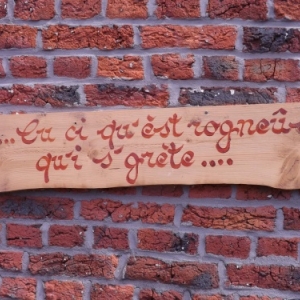 ...Cu ci qu'èst rogneû-
qui s'grète....